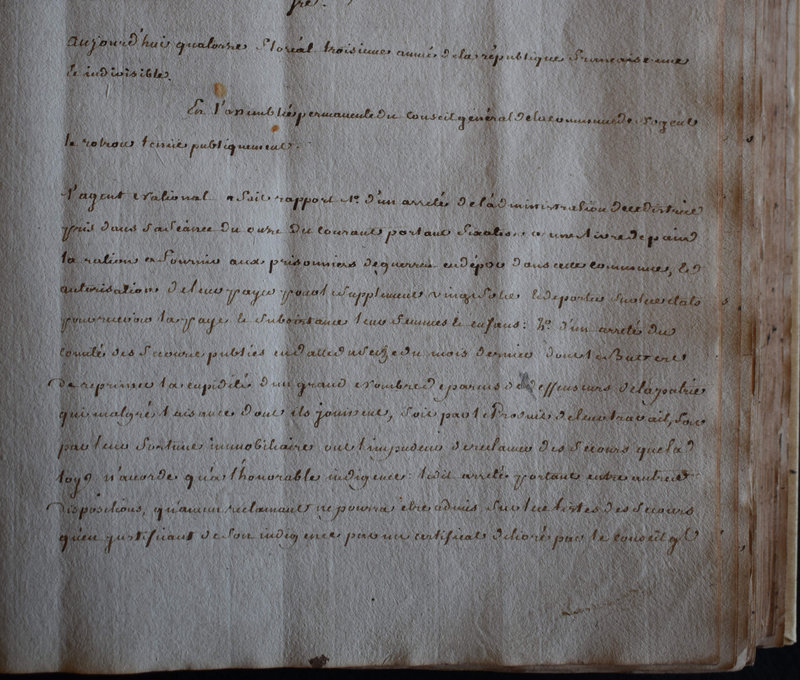 aujourd'hui quatorze floréal troisieme année de la république francaise une
et indivisible.
En l'assemblée permanente du Conseil général de la commune de Nogent
le rotrou tenüe publiquement.
l'agent National a fait rapport 1° d'un arrêté de l'administration de ce district
pris dans sa séance du onze du courant portant fixation a une livre de pain
la ration a fournir aux prisonniers de guerre en dépôt dans cette commune, et
autorisation de leur payer pour supplement vingt sols et de porter sur les états
pour recevoir la paye et subsistance leurs femmes et enfans: 2° d'un arrêté du
comité des Secours publics en datte du seize du mois dernier dont le But est
de reprimer la cupidité d'un grand nombre de parens des deffenseurs de la patrie
qui malgré l'aisance dont ils jouissent, soit par le Produit de leur travail, soit
par leur fortune immobiliaire ont l'impudeur de reclamer des secours que la
loy n'accorde qu'a l'honorable indigence ledit arrêté portant entre autres
dispositions, qu'aucun reclamant ne pourra être admis sur les listes des secours
qu'en justifiant de son indigence par un certificat délivré par le conseil gl